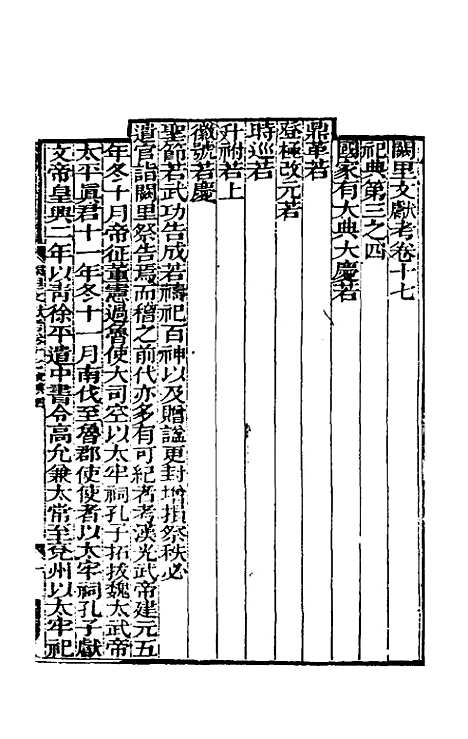 闕里文獻考卷十七
祀典第三之四
國家有大典大慶若
登極改元若
鼎革若
時巡若
升祔若上
徽號若慶
聖節若武功告成若禱祀百神以及贈諡更封增損祭秩必
遣官詣闕里祭告焉而稽之前代亦多有可紀者考漢光武帝建元五
年冬十月帝征董憲過魯使大司空以太牢祠孔子拓拔魏太武帝
太平眞君十一年冬十一月南伐至魯郡使使者以太牢祠孔子獻
文帝皇興二年以青徐平遣中書令高允兼太常至兗州以太牢祀